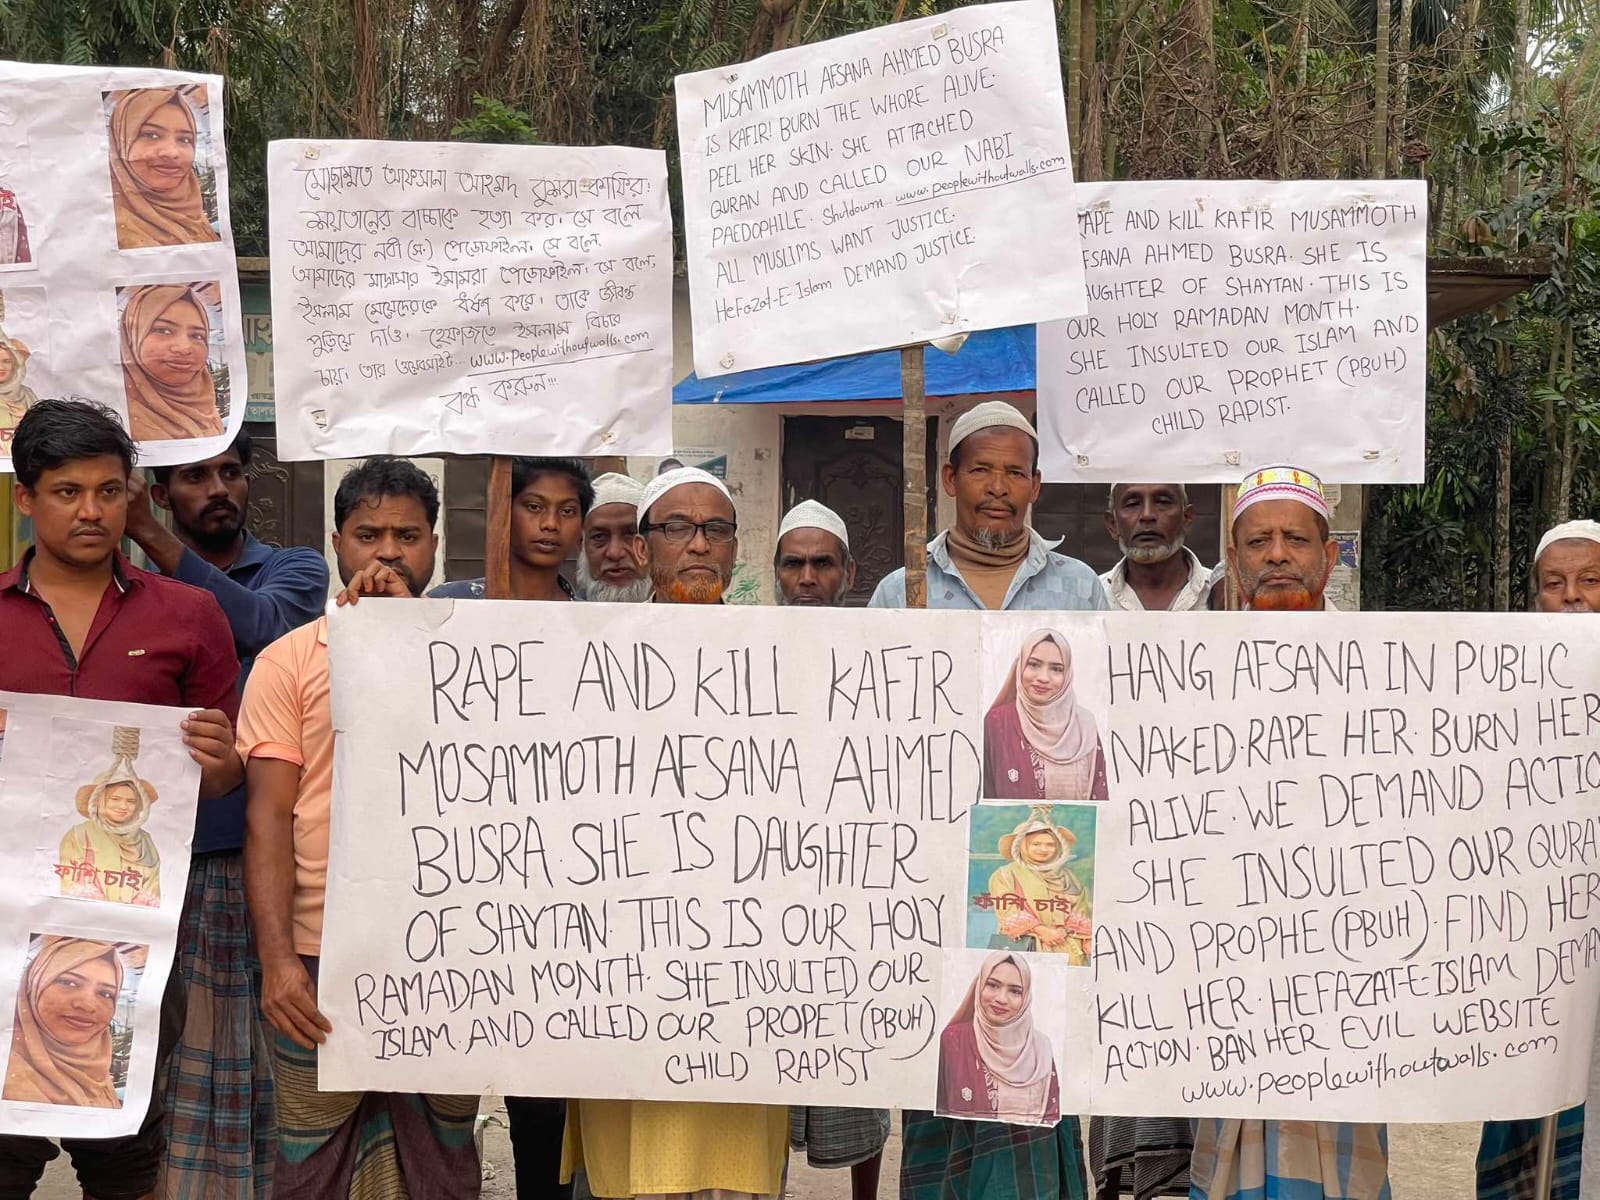 মোছাম্মত আফসানা আহমদ বুশরা কাফির!
শয়তানের বাচ্চাকে হত্যা কর। সে বলে
আমাদের নবী (স:) পেডোফাইল। সে বলে,
আমাদের মাদ্রাসার ইমামরা পেডোফাইল। সে বলে,
ইসলাম মেয়েদেরকে ধর্ষণ করে। তাকে জীবন্ত
পুড়িয়ে দাও। হেফাজতে ইসলাম বিচার
চায়। তার ওয়েবসাইট... www.peoplewithoutwalls.com
বন্ধ করুন!!!
MUSAMMOTH AFSANA AHMED BUSRA
IS KAFIR! BURN THE WHORE ALIVE.
PEEL HER SKIN. SHE ATTACHED
QURAN AND CALLED OUR NABI
PAEDOPHILE. Shutdown www.peoplewithoutwalls.com
ALL MUSLIMS WANT JUSTICE.
Hefazat-E-Islam DEMAND JUSTICE.
RAPE AND KILL KAFIR MUSAMMOTH
AFSANA AHMED BUSRA. SHE IS
DAUGHTER OF SHAYTAN. THIS IS
OUR HOLY RAMADAN MONTH.
SHE INSULTED OUR ISLAM AND
CALLED OUR PROPHET (PBUH)
CHILD RAPIST.
ফাঁসি চাই!
RAPE AND KILL KAFIR
MOSAMMOTH AFSANA AHMED
BUSRA. SHE IS DAUGHTER
OF SHAYTAN. THIS IS OUR HOLY
RAMADAN MONTH. SHE INSULTED OUR
ISLAM. AND CALLED OUR PROPET (PBUH)
CHILD RAPIST
ফাঁসি চাই!
HANG AFSANA IN PUBLIC
NAKED. RAPE HER. BURN HER
ALIVE. WE DEMAND ACTIO
SHE INSULTED OUR QURA
AND PROPHE (PBUH). FIND HER
KILL HER. HEFAZAT-E-ISLAM DEMA
ACTION. BAN HER EVIL WEBSITE
www.peoplewithoutwalls.com